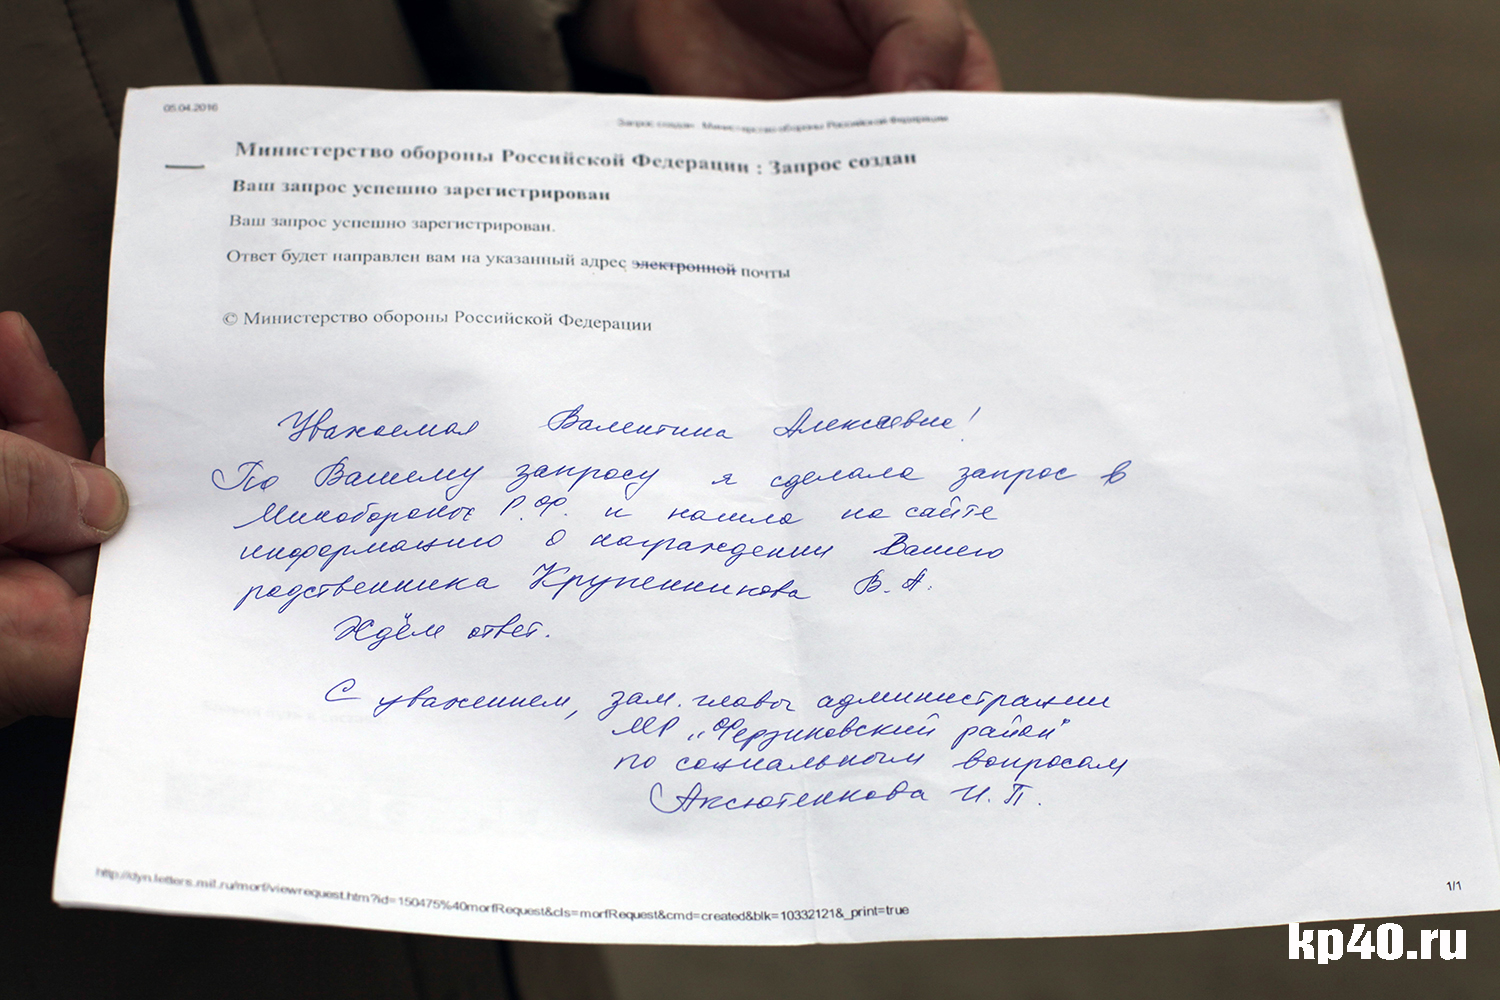 05.04.2016
Запрос создан - Министерство обороны Российской Федерации
Министерство обороны Российской Федерации : Запрос создан
Ваш запрос успешно зарегистрирован
Ваш запрос успешно зарегистрирован.
Ответ будет направлен вам на указанный адрес электронной почты
© Министерство обороны Российской Федерации
Уважаемая Валентина Алексеевна!
По Вашему запросу я сделала запрос в
Минобороных Р.Ф. и нашла на сайте
информацию о награждении Вашего
родственника Крупенникова В.А.
Ждём ответ.
С уважением, зам. главы администрации
МР „Ферзиковский район"
по социальным вопросам
Аксютенкова И.П.
http://dyn.letters.mil.ru/morf/viewrequest.htm?id=150475%40morfRequest&cls=morfRequest&cmd=created&blk=10332121&_print=true
1/1
kp40.ru